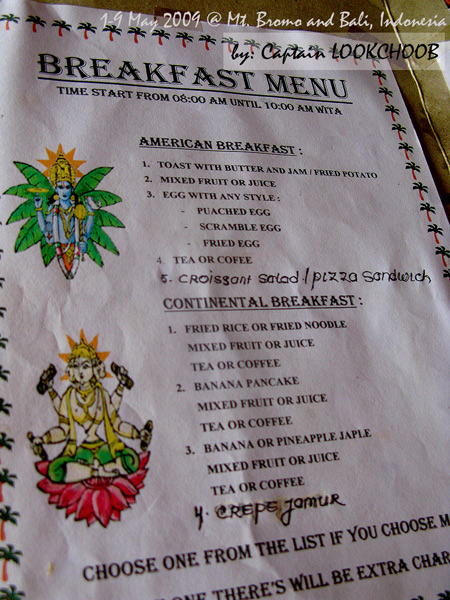 1-9 May 2009 @ Mt. Bromo and Bali, Indonesia
by: Captain LOOKCHOOB
BREAKFAST MENU
TIME START FROM 08:00 AM UNTIL 10:00 AM WITA
AMERICAN BREAKFAST :
1. TOAST WITH BUTTER AND JAM / FRIED POTATO
2. MIXED FRUIT OR JUICE
3. EGG WITH ANY STYLE :
- PUACHED EGG
- SCRAMBLE EGG
- FRIED EGG
4. TEA OR COFEE
5. CROISSANT SALAD / PIZZA SANDWICH
CONTINENTAL BREAKFAST :
1. FRIED RICE OR FRIED NOODLE
MIXED FRUIT OR JUICE
TEA OR COFFEE
2. BANANA PANCAKE
MIXED FRUIT OR JUICE
TEA OR COFFEE
3. BANANA OR PINEAPPLE JAPLE
MIXED FRUIT OR JUICE
TEA OR COFFEE
4. CREPE JAMUR
CHOOSE ONE FROM THE LIST IF YOU CHOOSE M
ONE THERE'S WILL BE EXTRA CHAR